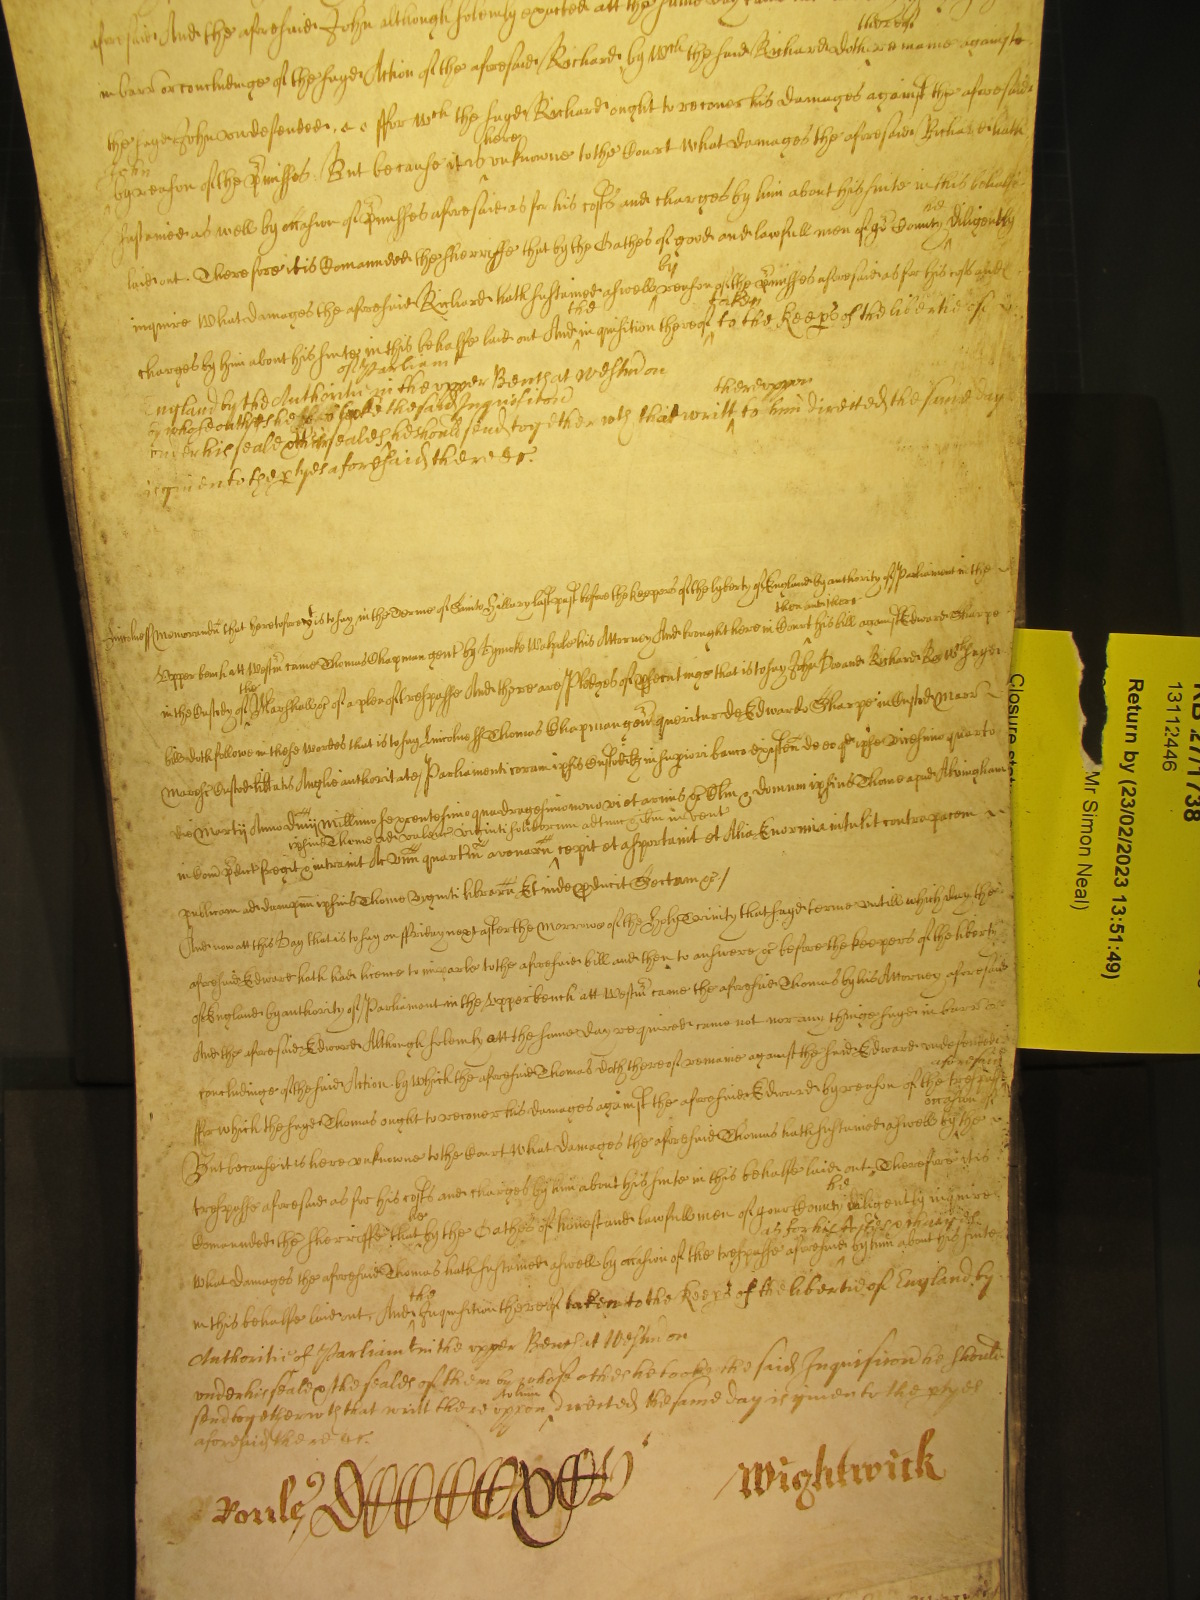 aforesaid And the aforesaid John although solemly exacted att the same day came not
in barr or concludinge of the sayd Action of the aforesaid Richard by wch the said Richard doth thereof remaine againste
the sayd John undefended, &c ffor wch the sayd Richard ought to recover his damages against the aforesaid
John by reason of the pmisses. But because it is here unknowne to the Court what damages the aforesaid Richard hath
sustained as well by occasion of pmisses aforesaid as for his costs and charges by him about his suite in this behalfe
laid out. Therefore it is Comaunded the Sherriffe that by the Oathes of good and lawfull men of yor County hee diligently
inquire what damages the aforesaid Richard hath sustained aswell by reason of the pmisses aforesaid as for his costs and
charges by him about his suite in this behalfe laid out And the inquisition thereof taken to the Keeps of the libertie of
England by the Authoritie of Parliam in the upper Bench at Westm on
under his seale & the seales he should send together wth that writt thereuppon to him directed the same day
is given to the ptyes aforesaid there &c.
Lincolne ss Memorandu that heretofore that is to say in the Terme of Sainte Hillary last past before the Keepers of the lyberty of England by authority of Parliament in the
Upper bench att Westm came Thomas Chapman gent by Dymoke Walpole his Attorney And brought here in Court then and there his bill against Edward Sharpe
in the Custody of the Marshall &c of a plea of trespasse And there are Pledges of psecutinge that is to say John Doe and Richard Roe wch sayd
bill doth followe in these wordes that is to say Lincolne ss Thomas Chapman gen queritur de Edwardo Sharpe in Custod Marr
Maresc Custod libtatis Anglie authoritate Parliamenti coram ipsis Custodib in supiori banco existen de eo qd ipse vicesimo quarto
die Martij Anno Dnij Millimo sexcentesimo quadragesimo nono vi et armis &c Clm & domum ipsius Thome apud Alvingham
in Com pdict fregit & intravit Ac unu quartiu avenaru ipsius Thome ad valenc viginti solidorum adtunc ibm invent cepit et asportavit et Alia Enormia intulit contra pacem
publicam ad dampnu ipsius Thome viginti libraru Et inde pducit Sectam &c /
And now att this Day that is to say on ffriday next after the Morrowe of the Holy Trinity that sayd terme untill which day the
aforesaid Edward hath had license to imparle to the aforesaid bill and then to answere &c before the Keepers of the liberty
of England by authority of Parliament in the Upper bench att Westm came the aforesaid Thomas by his Attorney aforesaid
And the aforesaid Edward Although solemly att the same day required came not nor any thinge sayd in barr or
concludinge of the said Action by which the aforesaid Thomas doth thereof remaine against the said Edward undefended
ffor which the sayd Thomas ought to recover his damages against the aforesaid Edward by reason of the trespasse aforesaid
But because it is here unknowne to the Court what damages the aforesaid Thomas hath sustained aswell by the occasion of
trespasse aforesaid as for his costs and charges by him about his suite in this behalfe laid out Therefore it is
Comaunded the Sherriffe that by the Oathes of honest and lawfull men of your County hee diligently inquire
what damages the aforesaid Thomas hath sustained aswell by occasion of the trespasse aforesaid as for his costs & charges by him about his suite
in this behalfe laid out, And the Inquisition thereof taken to the Keeps of the libertie of England by
Authoritie of Parliamt in the upper Bench at Westm on
under his seale & the seales of them by whose othes he tooke the said Inquisicon he should
send together wth that writt thereuppon to him directed the same day is given to the ptyes
aforesaid there &c.
Voules Wightwick
Closure stat
13112446
Return by (23/02/2023 13:51:49)
Mr Simon Neal)